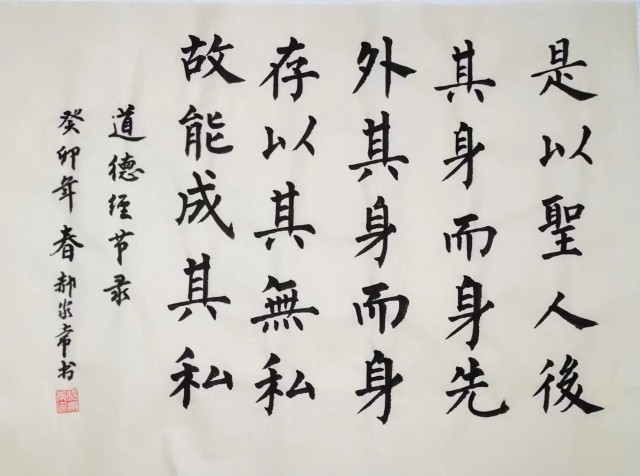 是以聖人後
其身而身先
外其身而身
存以其無私
故能成其私
道德经节录
癸卯年春郝 常书